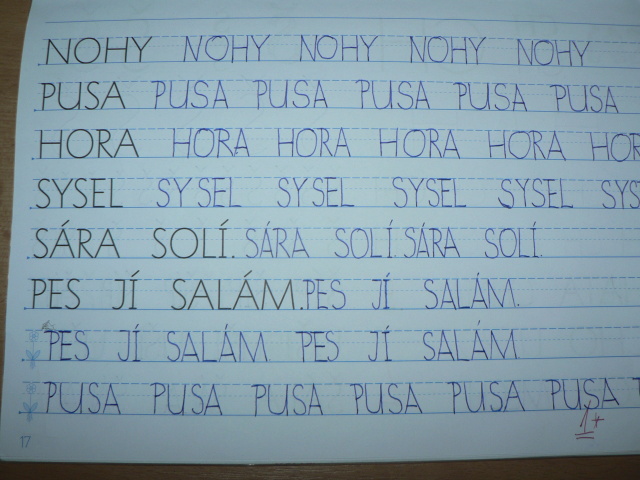 NOHY NOHY NOHY NOHY NOHY
PUSA PUSA PUSA PUSA PUSA PUSA
HORA HORA HORA HORA HORA HOR
SYSEL SYSEL SYSEL SYSEL SYSEL SYS
SÁRA SOLÍ. SÁRA SOLÍ. SÁRA SOLÍ.
PES JÍ SALÁM. PES JÍ SALÁM.
PES JÍ SALÁM PES JÍ SALÁM
PUSA PUSA PUSA PUSA PUSA PUSA
1+
17